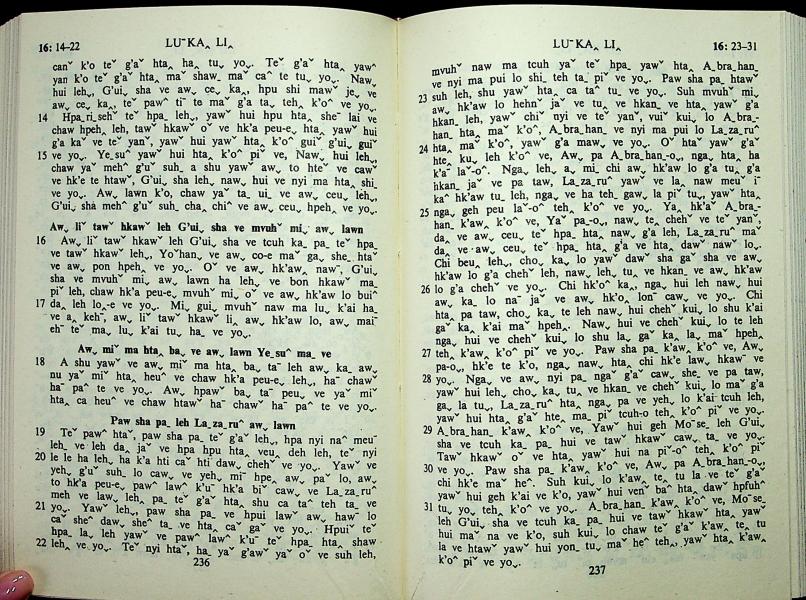 16: 14–22
LUˉ KA˰ LI˰
canˇ k'o teˇ g'aˇ hta˰ ha˰ tu˰ yo˯. Teˇ g'aˇ hta˰ yawˆ
yan k'o teˇ g'aˇ hta˰ maˇ shaw_ maˇ caˆ te tu˰ yo˯. Naw˯
hui leh˯, G'ui˯ sha ve aw˰ ce˯ ka˰, hpu shi mawˇ je˯ ve
aw˰ ce˯ ka˰, teˇ pawˆ tiˉ te maˇ g'a ta˰ teh˰ k'oˆ ve yo˯.
14 Hpa_ri_sehˇ teˇ hpa_ leh˯, yawˇ hui hpu hta˰ sheˉ lai ve
chaw hpeh˰ leh, taw˰ hkawˇ oˇ ve hk'a peu-e˯ hta˰ yawˇ hui
g'a kaˇ ve teˇ yanˇ, yawˇ hui yawˇ hta˰ k'oˆ gui˯ g'ui˯ gui˯
15 ve yo˯. Ye_suˆ yawˇ hui hta˰ k'oˆ piˇ ve, Naw˯ hui leh˯,
chaw yaˇ mehˆ g'uˇ suh_ a shu yawˇ aw˰ to hteˇ ve cawˇ
ve hk'e te htawˇ, G'ui˯ sha leh, naw˯ hui ve nyi ma hta˰ shi˰
ve yo˯. Aw˰ lawn k'o˰ chaw yaˇ ta˰ ui ve aw˰ ceu˯ leh˯,
G'ui˯ sha mehˆ g'uˇ suh_ cha˰ chiˆ ve aw˰ ceu˯ hpeh˰ ve yo˯.
Aw˰ liˇ tawˇ hkawˇ leh G'ui˯ sha ve mvuhˇ mi˯ aw˰ lawn
16 Aw˰ liˇ tawˇ hkawˇ leh G'ui˯ sha ve tcuh ka_ pa_ teˇ hpa_
ve tawˇ hkawˇ leh˯, Yoˇhan˯ ve aw˰ co-e maˇ ga˰ she_ htaˇ
ve aw˰ pon hpeh˰ ve yo˯. Oˇ ve aw˰ hk'aw˰ nawˉ, G'ui˯
sha ve mvuhˇ mi˯ aw˰ lawn ha leh˯ ve bon hkawˇ ma_
piˇ leh, chaw hk'a peu-e˯ mvuhˇ mi˯ oˇ ve aw˰ hk'aw lo buiˆ
17 da˰ leh lo_-e ve yo˯. Mi˰ gui˯ mvuhˇ naw ma lu˰ k'ai ha_
ve a˰ kehˉ, aw˰ liˇ tawˇ hkawˇ li˰ aw˰ hk'aw lo, aw˰ mai˯
ehˉ teˇ ma˰ lu˰ k'ai tu˰ ha_ ve yo˯.
Aw˰ miˇ ma hta˰ ba˰ ve aw˰ lawn Ye_suˆ ma_ ve
18 A shu yawˇ ve aw˰ miˇ ma hta˰ ba˰ taˉ leh aw˰ ka˰ aw˰
nu yaˇ miˇ hta˰ heuˆ ve chaw hk'a peu-e˯ leh˯, haˉ chawˇ
haˉ paˆ te ve yo˯. Aw˰ hpawˇ baˉ taˉ peu˯ ve yaˇ miˇ
hta˰ ca heuˆ ve chaw htawˇ haˉ chawˇ haˉ paˆ te ve yo˯.
Paw sha pa_ leh La_za_ruˆ aw˰ lawn
19 Teˇ pawˆ htaˇ, paw sha pa_ teˇ g'aˇ leh˯, hpa nyi naˇ meuˉ
leh˯ ve leh da˰ jaˇ ve hpa hpu hta˰ veu˰ deh leh, teˇ nyi
20 le le ha leh˰ ha k'a hti caˇ hti daw˰ chehˇ ve yo˯. Yawˇ ve
yeh˰ g'uˇ suh_ lo caw˰ ve yeh˰ miˉ hpe˯ aw˰ paˇ lo, aw˰
to hk'a peu-e˯ pawˆ lawˆ k'uˉ hk'a biˇ caw˰ ve La_za_ruˆ
meh ve law˰ leh˰ pa_ teˇ g'aˇ hta˰ shu ca taˆ teh ta_ ve
21 yo˯. Yawˇ leh˯, paw sha pa_ ve hpui lawˇ aw˰ hawˉ lo
caˇ sheˆ daw_ sheˆ ta_ ve hta˰ caˇ gaˇ ve yo˯. Hpuiˉ teˇ
hpa_ la_ leh yawˇ ve pawˆ lawˆ k'uˉ teˇ hpa_ hta˰ shaw
22 leh˰ ve yo˯. Teˇ nyi htaˇ, ha˰ yaˇ g'awˇ yaˇ oˇ ve suh leh,
236
LUˉ KA˰ LI˰
16: 23–31
mvuhˇ naw ma tcuh yaˇ teˇ hpa_ yawˇ hta˰ A_bra_han_
ve nyi ma pui lo shi_ teh ta_ piˇ ve yo˯. Paw sha pa_ htawˇ
23 suh leh, shu yawˇ hta˰ ca taˆ tu˰ ve yo˯. Suh mvuhˇ mi˯
aw˰ hk'aw lo hehnˇ jaˇ ve tu˰ ve hkan˰ ve hta˰ yawˇ g'a
hkan˰ leh, yawˇ chiˇ nyi ve teˇ yanˇ, vuiˇ kui˯ lo A_bra_-
han_ hta˰ maˆ k'oˆ, A_bra_han_ ve nyi ma pui lo La_za_ruˆ
24 hta˰ maˆ k'oˆ, yawˇ g'a maw˰ ve yo˯. Oˇ htaˇ yawˇ g'aˇ
hte˰ ku˯ leh k'oˆ ve, Aw˰ pa A_bra_han_-o˯, nga˰ hta˰ ha
k'aˇ la˅-oˆ. Nga˰ leh a˰ mi˯ chi aw˰ hk'aw lo g'a tu˰ g'a
hkan˰ jaˇ ve pa taw˰ La_za_ruˆ yawˇ ve la˰ naw meuˇ iˉ
kaˆ hk'aw tu˰ leh, nga˰ ve ha teh˰ gaw˰ la piˇ tu˰, yawˇ hta˰
25 nga˰ geh peu la˅-oˆ teh˰ k'oˆ ve yo˯. Ya˰ hk'aˇ A_bra_-
han_ k'aw˰ k'oˆ ve, Yaˇ pa-o˯, naw˯ te˰ chehˇ ve teˇ yanˇ,
da˰ ve aw˰ ceu˯ teˇ hpa_ hta˰ naw˯ g'a leh, La_za_ruˆ maˇ
da˰ ve aw˰ ceu˯ teˇ hpa_ hta˰ g'a ve htaˇ dawˇ nawˇ lo˯.
Chi beu˰ leh˯, cho˰ ka˰ lo yawˇ dawˇ sha gaˇ sha ve aw˰
hk'aw lo g'a chehˇ leh, naw˯ leh˯ tu˰ ve hkan˰ ve aw˰ hk'aw
26 lo g'a chehˇ ve yo˯. Chi hk'oˆ ka˰, nga˰ hui leh naw˯ hui
aw˰ ka˰ lo naˇ jaˇ ve aw˰ hk'o˰ lonˉ caw˰ ve yo˯. Chi
hta˰ pa taw˰ cho˰ ka˰ te leh naw˯ hui chehˇ kui˯ lo shu k'ai
gaˇ ka˰ k'ai maˇ hpeh˰. Naw˯ hui ve chehˇ kui˯ lo te leh
nga˰ hui ve chehˇ kui˯ lo shu la˰ gaˇ ka˰ la˰ maˇ hpeh˰
27 teh˰ k'aw˰ k'oˆ piˇ ve yo˯. Paw sha pa_ k'aw˰ k'oˆ ve, Aw˰
pa-o˯, hk'e te k'o˰ nga˰ nawˇ hta˰ chi hk'e lawˇ hkawˇ ve
28 yo˯. Nga˰ ve aw˰ nyi pa_ ngaˇ g'aˇ caw˰ she_ ve pa taw˰
yawˇ hui leh˯, cho˰ ka˰ tu˰ ve hkan˰ ve chehˇ kui˯ lo maˇ g'a
ga˰ la tu˰, La_za_ruˆ hta˰ nga˰ pa ve yeh˰ lo k'ai tcuh leh,
yawˇ hui hta˰ g'aˇ hte˰ ma_ piˇ tcuh-o teh˰ k'oˆ piˇ ve yo˯.
29 A_bra_han_ k'aw˰ k'oˆ ve, Yawˇ hui geh Moˉse_ leh G'ui˯
sha ve tcuh ka_ pa_ hui ve tawˇ hkawˇ caw˰ ta_ ve yo˯.
Tawˇ hkawˇ oˇ ve hta˰ yawˇ hui na piˇ-oˆ teh˰ k'oˆ piˇ
30 ve yo˯. Paw sha pa_ k'aw˰ k'oˆ ve, Aw˰ pa A_bra_han_-o˯,
chi hk'e maˇ heˆ. Suh kui˯ lo k'aw˰ te˰ tu la ve teˇ g'aˇ
yawˇ hui geh k'ai ve k'o˰ yawˇ hui venˇ baˆ hta˰ dawˇ hpfuhˆ
31 tu˰ yo˯ teh˰ k'oˆ ve yo˯. A_bra_han_ k'aw˰ k'oˆ ve, Moˉse_
leh G'ui˯ sha ve tcuh ka_ pa_ hui ve tawˇ hkawˇ hta˰ yawˇ
hui maˇ na ve k'o˰ suh kui˯ lo chaw teˇ g'aˇ k'aw˰ te˰ tu
la ve htawˇ yawˇ hui yon_ tu˰ maˇ heˆ teh˰ yawˇ hta˰ k'aw˰
k'oˆ piˇ ve yo˯.
237